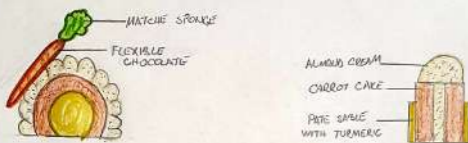 MATCHE SPONGE
FLEXIBLE
CHOCOLATE
ALMOND CREAM
CARROT CAKE
PATE SABLE
WITH TURMERIC